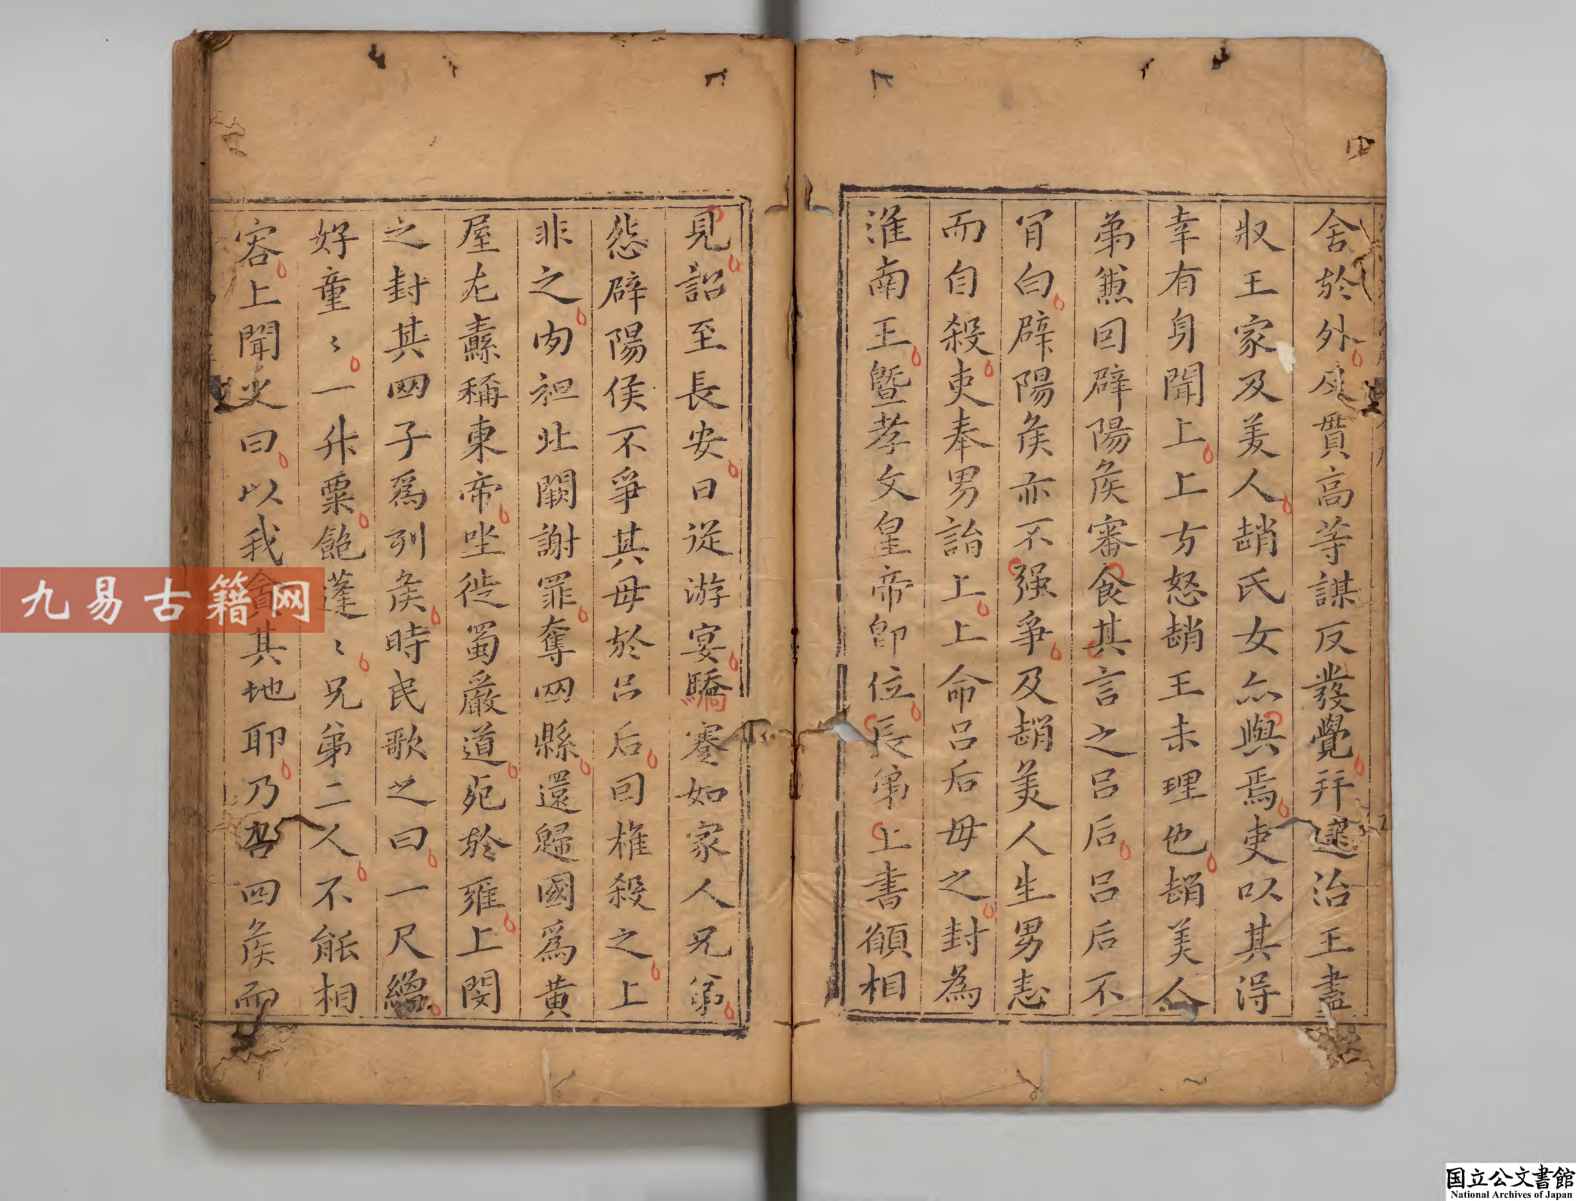 舍於外及貫高等謀反發覺并逮治王盡
収王家及美人趙氏女亦與焉吏以其得
幸有身聞上上方怒趙王未理也趙美人
弟兼回辟陽侯審食其言之吕后吕后不
肎白辟陽侯亦不强爭及趙美人生男恚
而自殺吏奉男詣上上命吕后母之封為
淮南王暨孝文皇帝即位長弟上書願相
見詔至長安日從游宴驕蹇如家人兄弟
怨辟陽侯不爭其母於吕后回椎殺之上
非之肉袒北闕謝罪奪四縣還歸國爲黄
屋左纛稱東帝坐徙蜀嚴道死於雍上閔
之封其四子爲列侯時民歌之曰一尺繒
好童〻一升粟飽蓬〻兄弟二人不能相
容上聞之曰以我貪其地耶乃召四侯而
九易古籍网
国立公文書館
National Archives of Japan